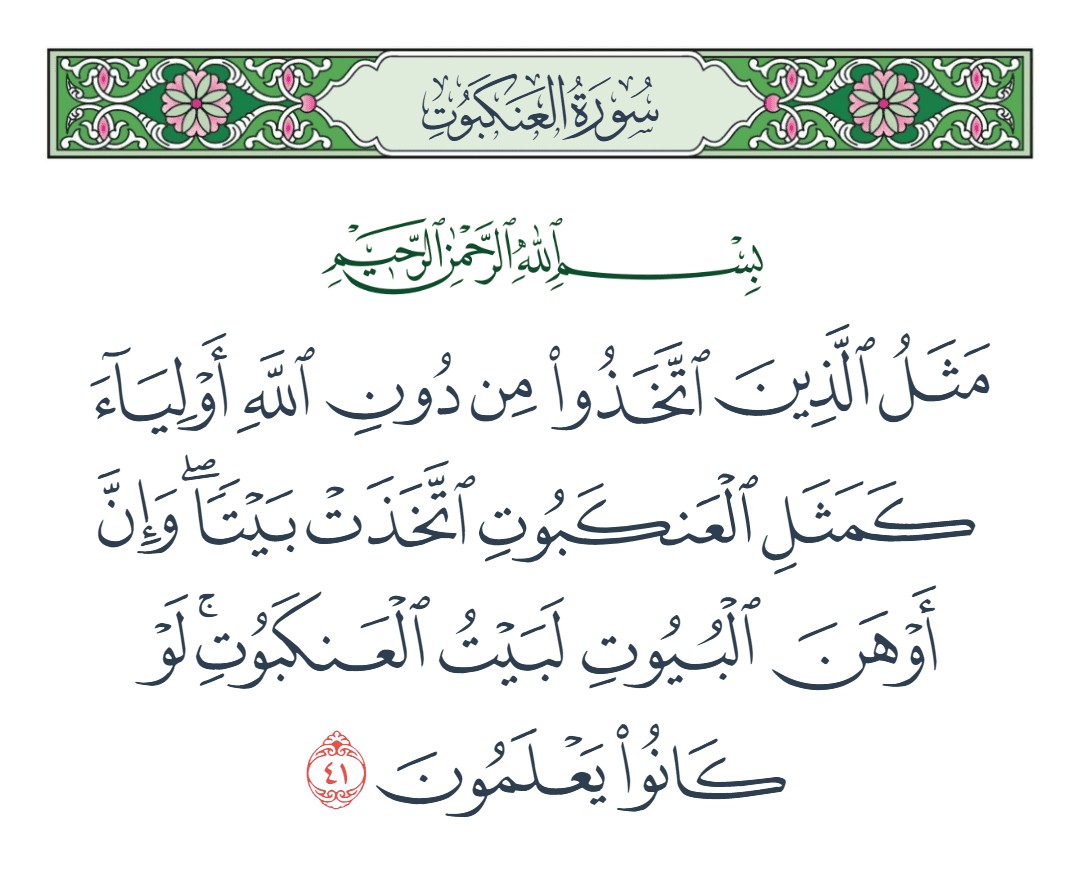 سُورَةُ الْعَنكَبُوتِ
بِسْمِ ٱللَّهِ ٱلرَّحْمَٰنِ ٱلرَّحِيمِ
مَثَلُ ٱلَّذِينَ ٱتَّخَذُوا۟ مِن دُونِ ٱللَّهِ أَوْلِيَآءَ
كَمَثَلِ ٱلْعَنكَبُوتِ ٱتَّخَذَتْ بَيْتًۭا ۖ وَإِنَّ
أَوْهَنَ ٱلْبُيُوتِ لَبَيْتُ ٱلْعَنكَبُوتِ ۚ لَوْ
كَانُوا۟ يَعْلَمُونَ ٤١